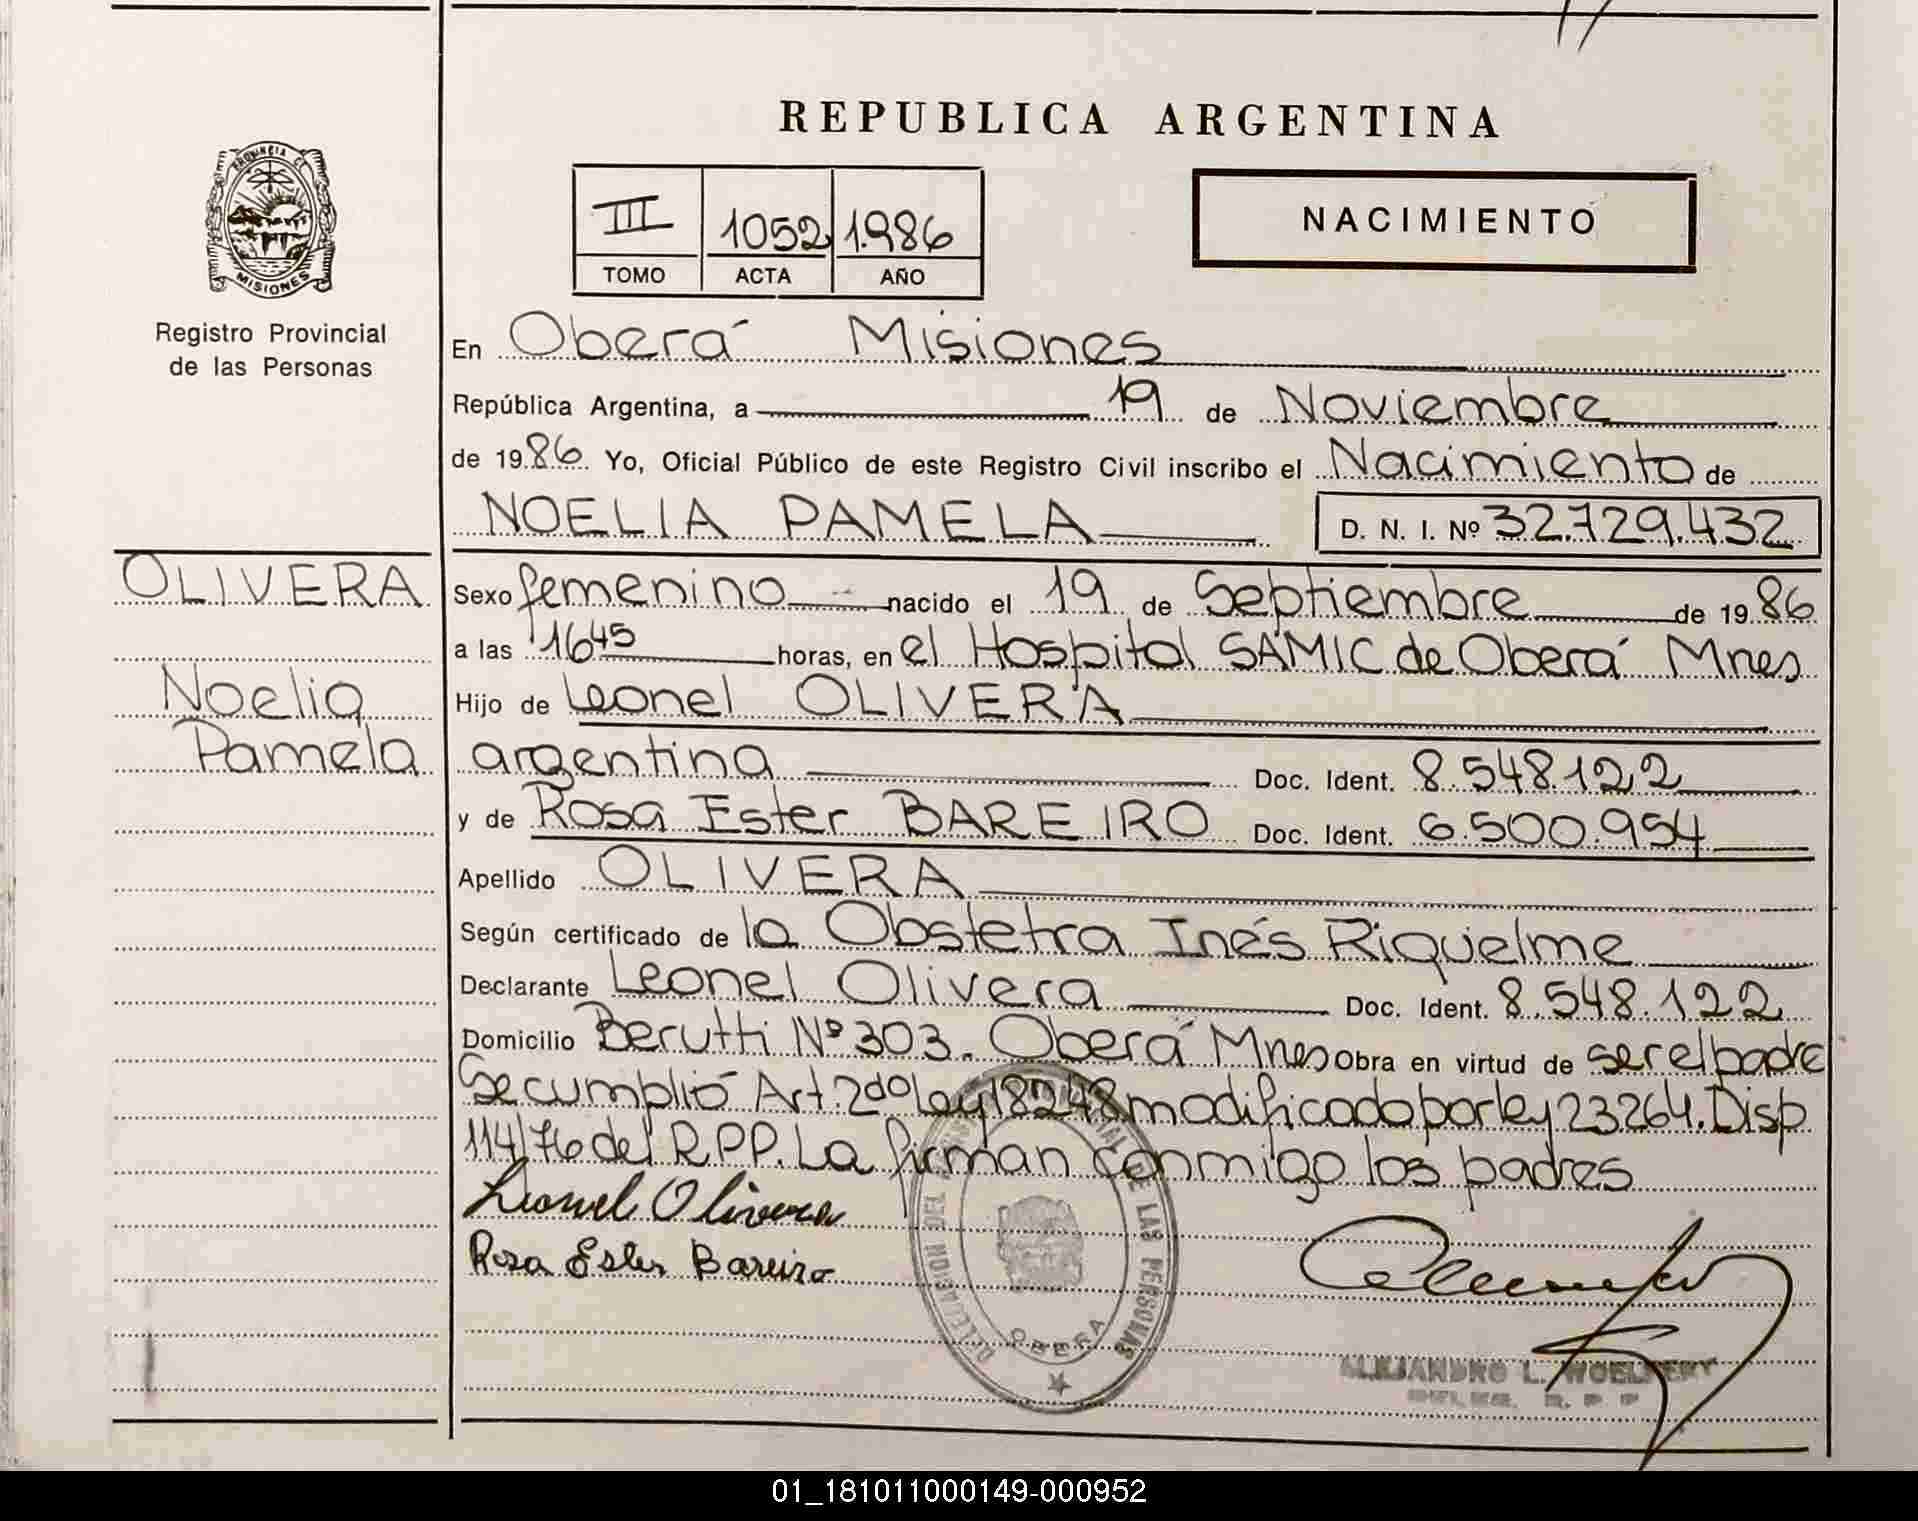 REPUBLICA ARGENTINA
PROVINCIA DE
MISIONES
Registro Provincial
de las Personas
III 1052 1.986
TOMO ACTA AÑO
NACIMIENTO
En Oberá Misiones
República Argentina, a 19 de Noviembre
de 1986 Yo, Oficial Público de este Registro Civil inscribo el Nacimiento de
NOELIA PAMELA D. N. I. Nº 32.729.432
OLIVERA
Noelia
Pamela
Sexo femenino nacido el 19 de Septiembre de 1986
a las 16 45 horas, en el Hospital SAMIC de Oberá Mnes
Hijo de Leonel OLIVERA
argentina Doc. Ident. 8.548.122
y de Rosa Ester BAREIRO Doc. Ident. 6.500.954
Apellido OLIVERA
Según certificado de la Obstetra Inés Riquelme
Declarante Leonel Olivera Doc. Ident. 8.548.122
Domicilio Berutti Nº 303. Oberá Mnes Obra en virtud de ser el padre
Se cumplió Art. 2do Ley 18248 modificado por ley 23264. Disp
114/76 del R.P.P. La firman conmigo los padres
Leonel Olivera
Rosa Ester Bareiro
DELEGACION DEL REGISTRO PROVINCIAL DE LAS PERSONAS
OBERA
ALEJANDRO L. WOELFERT
R. P. P
01_181011000149-000952